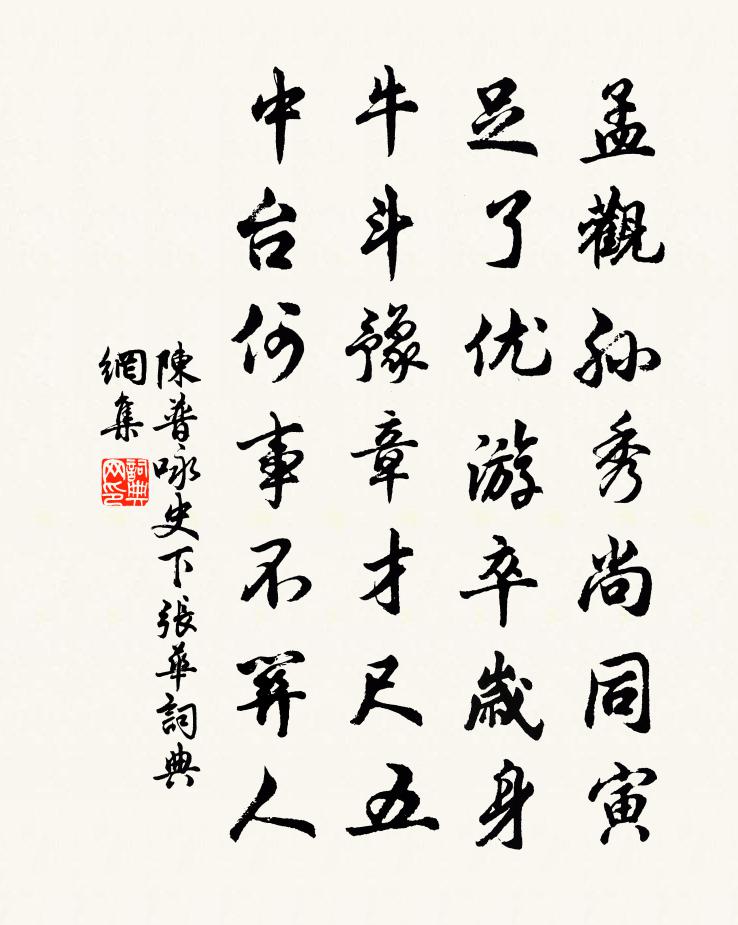 孟觀孙秀尚同寅
足了优游卒歲身
牛斗豫章才尺五
中台何事不筭人
陳普咏史下張華詞典
網集
詞典
网印